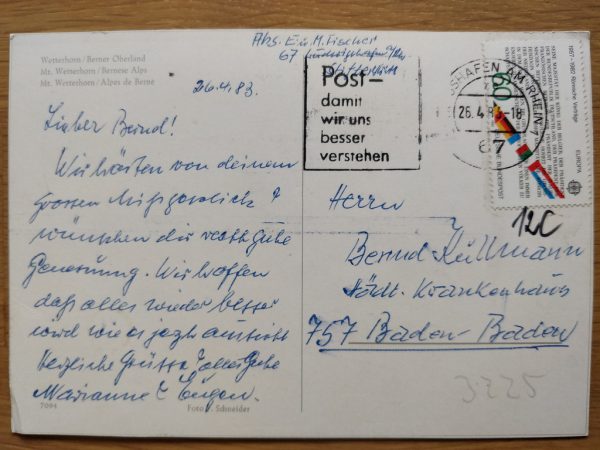 Wetterhorn/Berner Oberland
Mt. Wetterhorn/Bernese Alps
Mt. Wetterhorn/Alpes de Berne
Abs. E. u. M. Fischer
67 Ludwigshafen a/Rh.
26.4.83.
Lieber Bernd!
Wir hörten von deinem
grossen Missgeschick &
wünschen dir recht gute
Genesung. Wir hoffen
daß alles wieder besser
wird wie es jezt aussieht
Herzliche Grüsse & alles Gute
Marianne & Eugen.
7094
Foto Schneider
Post-
damit
wir uns
besser
verstehen
GSHAFEN AM RHEIN
26.4.83-18
67
60
EUROPA
DEUTSCHE BUNDESPOST
12C
Herrn
Bernd Küllmann
Städt. Krankenhaus
757 Baden-Baden
3225